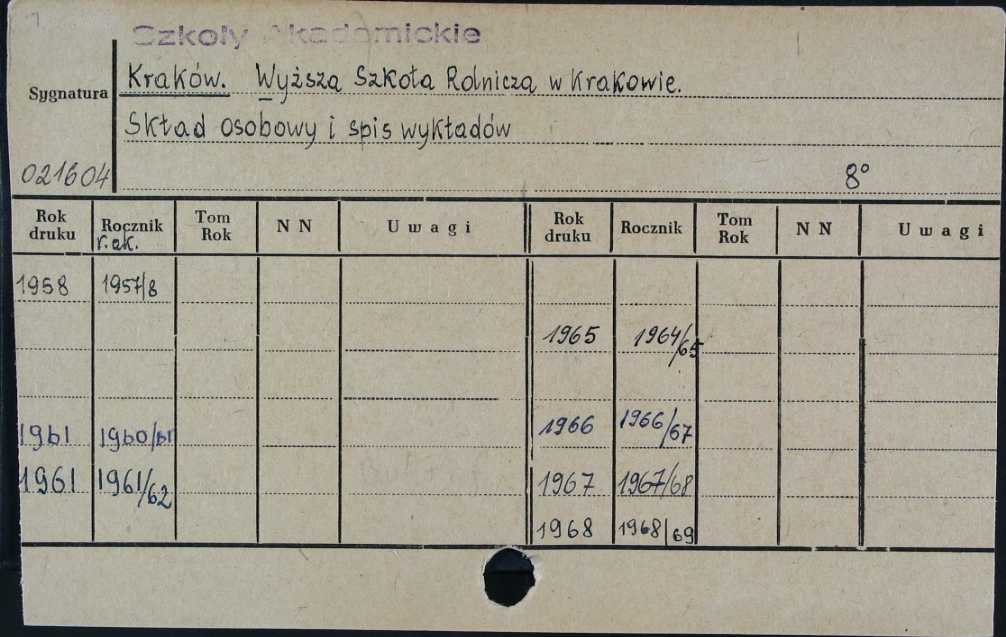 Szkoły Akademickie
Kraków. Wyższa Szkoła Rolnicza w Krakowie.
Sygnatura
Skład osobowy i spis wykładów
021604
8°
Rok druku Rocznik r. ak. Tom Rok N N Uwagi Rok druku Rocznik Tom Rok N N Uwagi
1958 1957/8
1965 1964/65
1961 1960/61 1966 1966/67
1961 1961/62 1967 1967/68
1968 1968/69